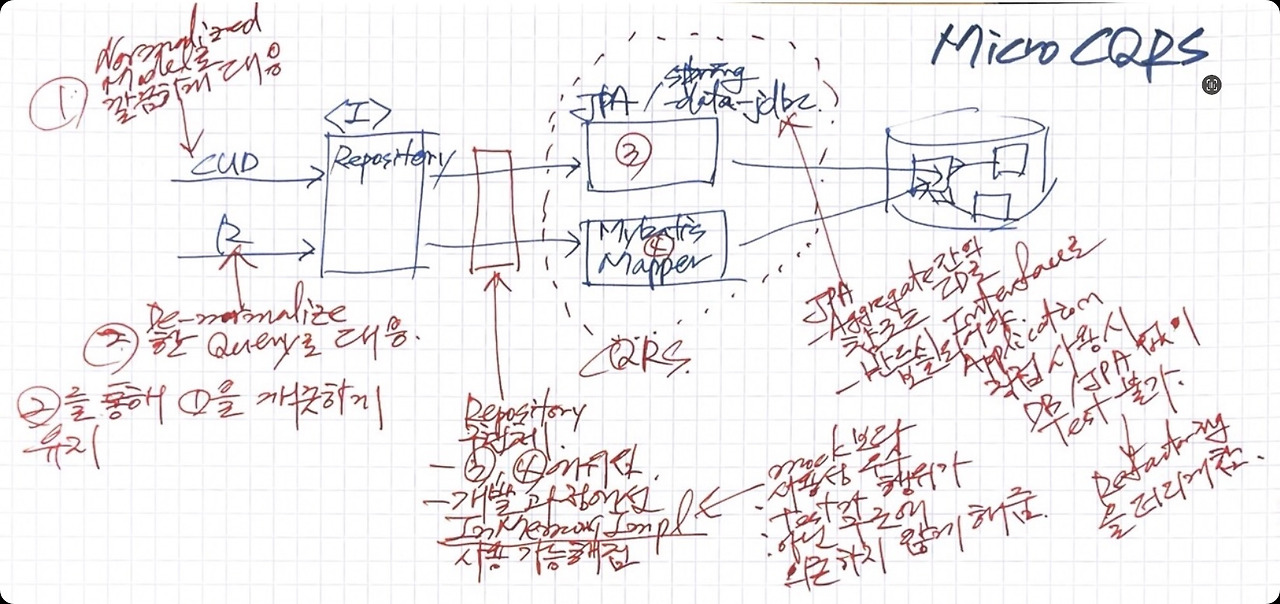 Micro CQRS
Normalized
Model로
깔끔하게 대응
①
<I>
CUD
Repository
R
JPA / spring
-data-jdbc
③
Mybatis
④
Mapper
CQRS
De-normalize
② 한 Query로 대응.
②을 통해 ①을 깨끗하게
유지
Repository
구현체
- ③, ④에 위임.
- 개발 과정에선
InMemoryImpl
사용 가능해짐
mock보다
사용성 우수
test가 행위가
아닌 구현에
의존하지 않게 해줌.
JPA
- Aggregate간의
참조는 ID로
- 반드시 Interface로
분리되어야함.
Application
직접 사용시
DB/JPA 없이
Test 불가.
Refactoring
을 꺼리게 함.